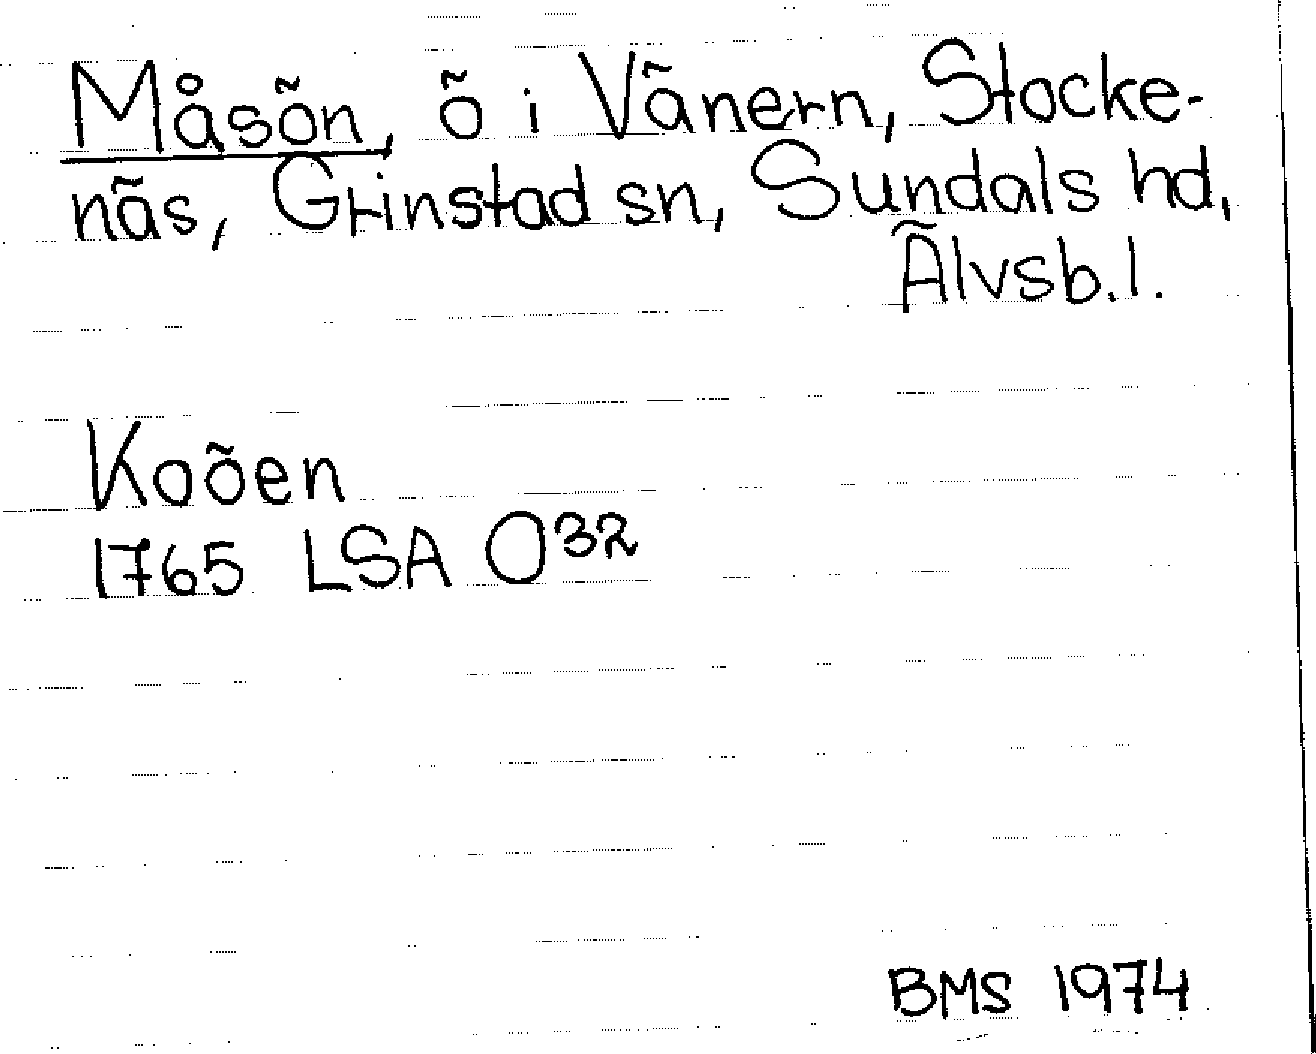 Måsön, ö i Vänern, Stocke-
näs, Grinstad sn, Sundals hd,
Älvsb.l.
Koöen
1765 LSA O32
BMS 1974